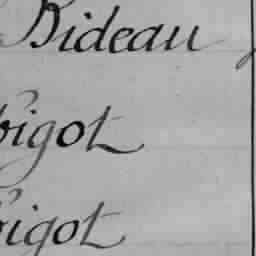 Bideau
bigot
bigot